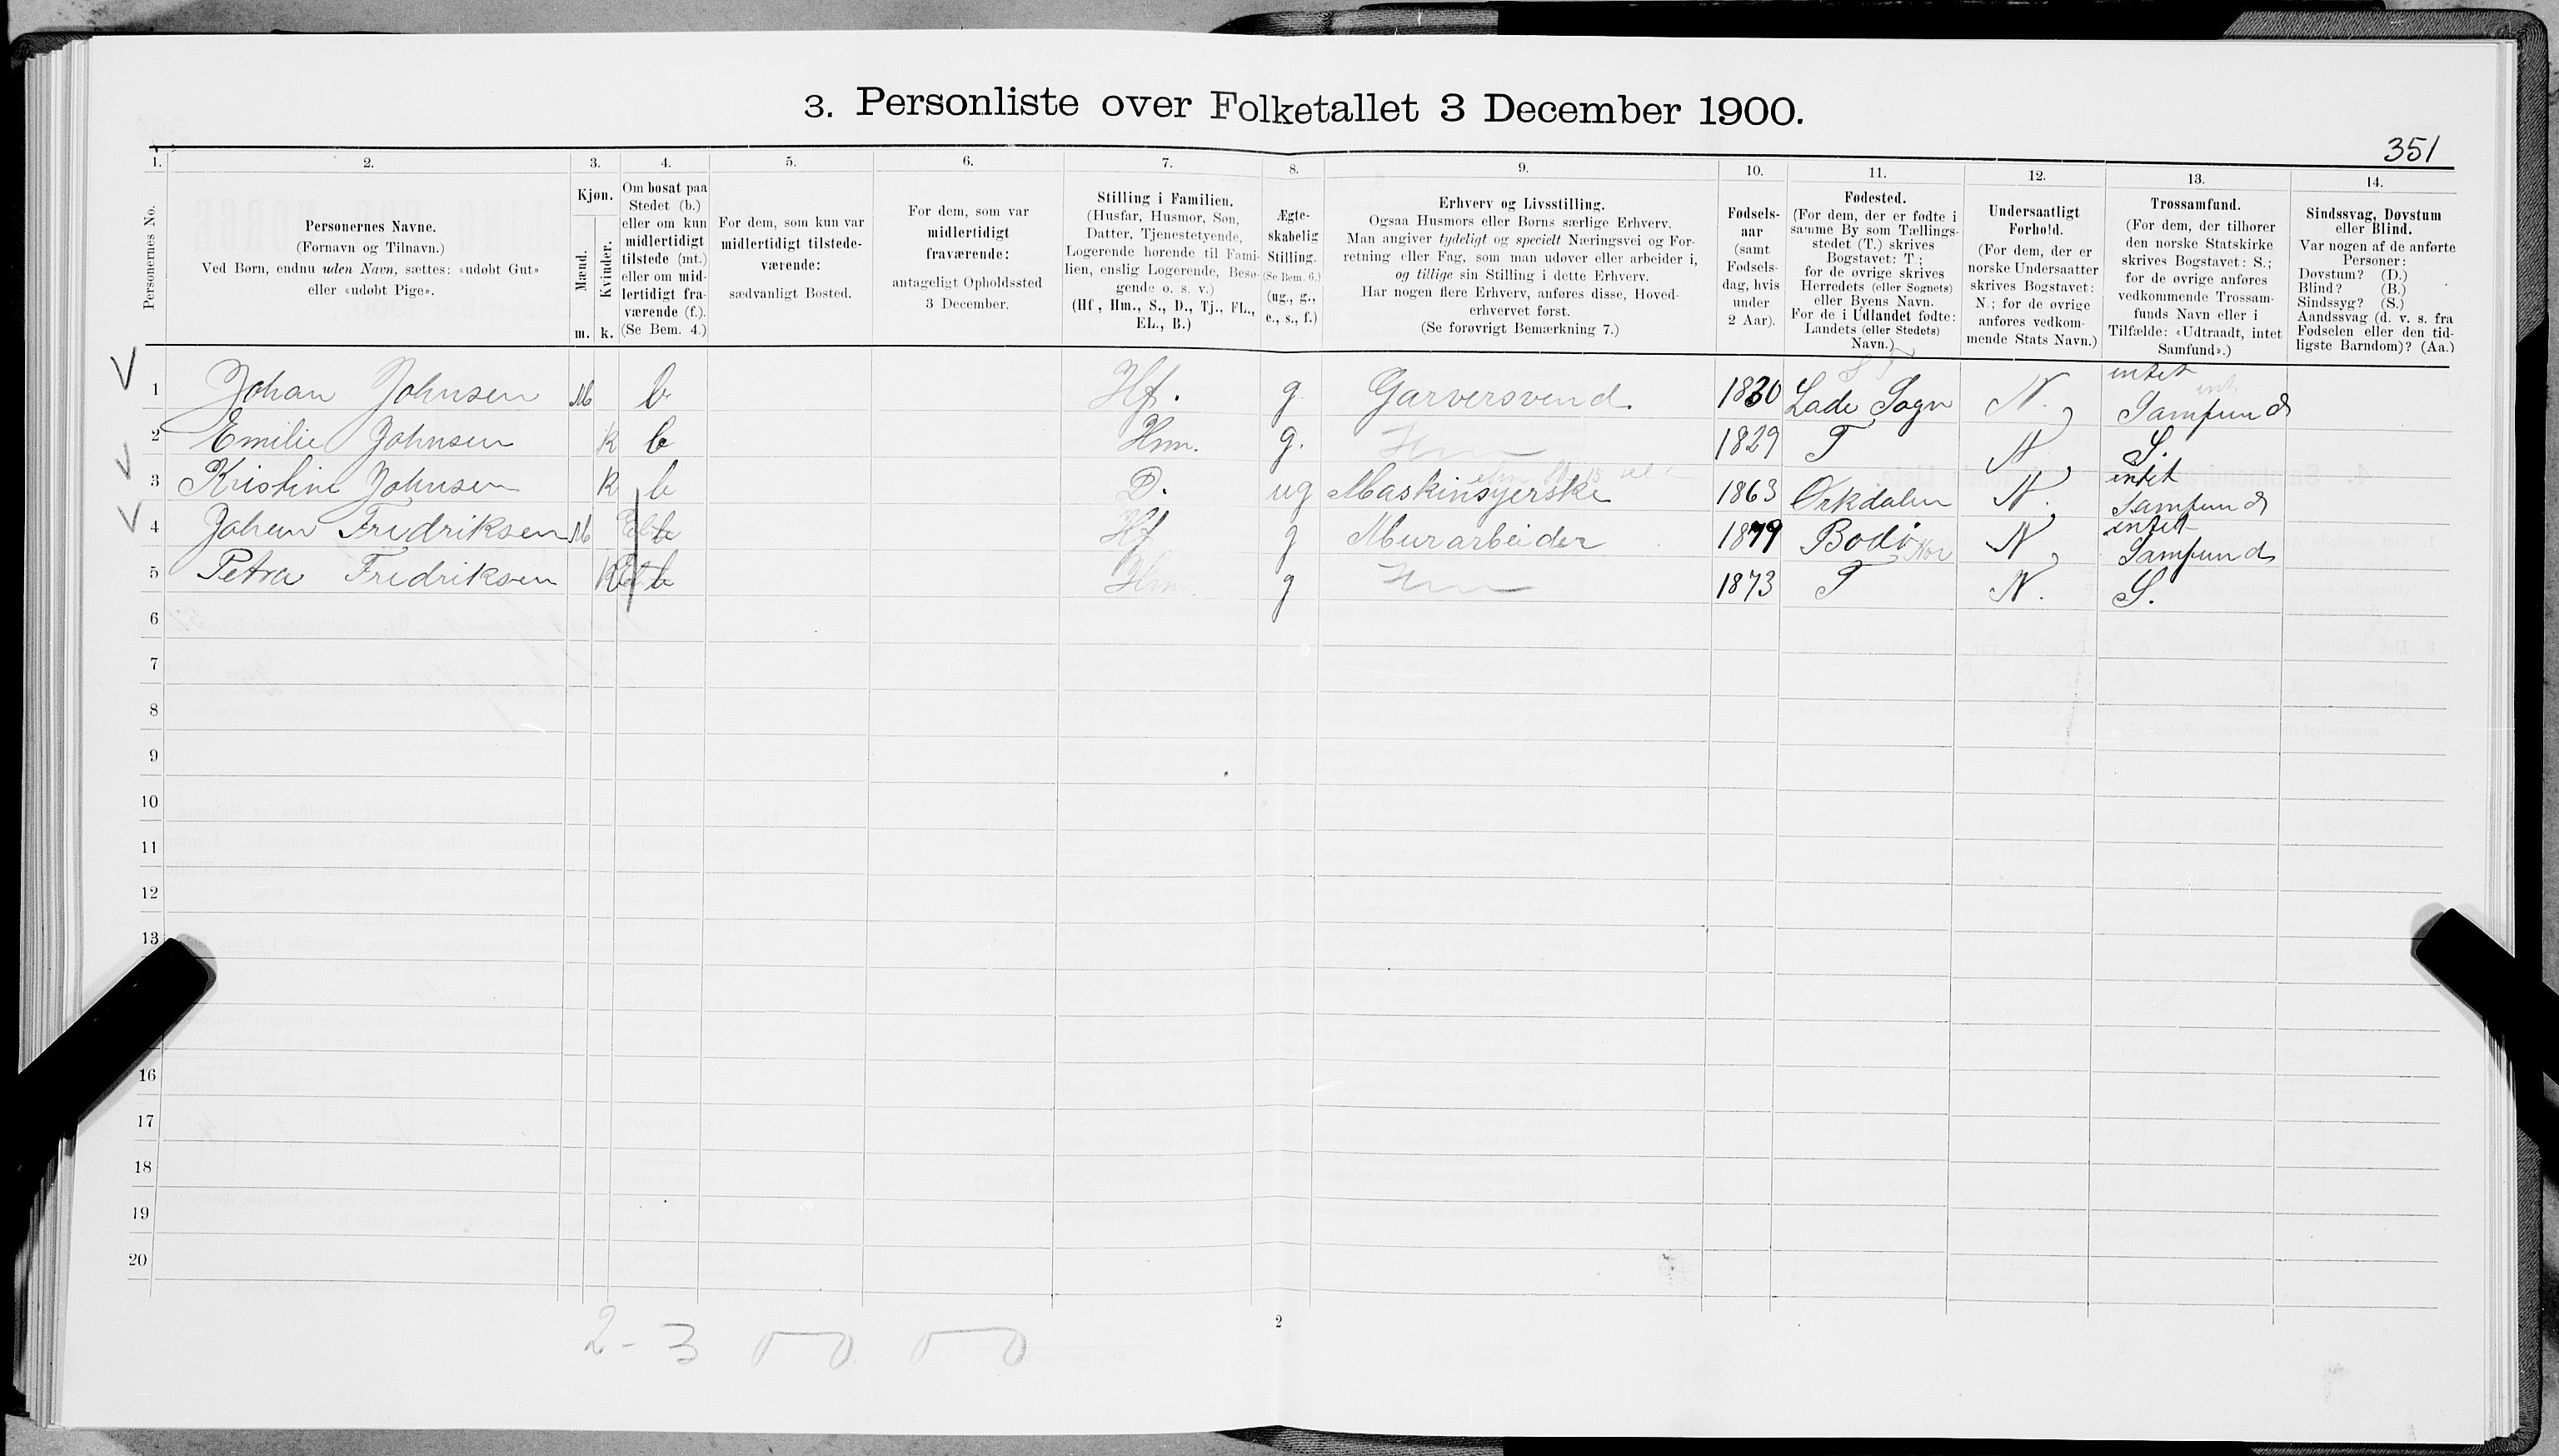 3. Personliste over Folketallet 3 December 1900.
351
1. 2. 3. 4. 5. 6. 7. 8. 9. 10. 11. 12. 13. 14.
Personernes No.
Personernes Navne.
(Fornavn og Tilnavn.)
Ved Børn, endnu uden Navn, sættes: «udøbt Gut»
eller «udøbt Pige».
Kjøn.
Mænd.
Kvinder.
m. k.
Om bosat paa
Stedet (b.)
eller om kun
midlertidigt
tilstede (mt.)
eller om mid-
lertidigt fra-
værende (f.).
(Se Bem. 4.)
For dem, som kun var
midlertidigt tilstede-
værende:
sædvanligt Bosted.
For dem, som var
midlertidigt
fraværende:
antageligt Opholdssted
3 December.
Stilling i Familien.
(Husfar, Husmor, Søn,
Datter, Tjenestetyende,
Logerende hørende til Fami-
lien, enslig Logerende, Besø-
gende o. s. v.)
(Hf., Hm., S., D., Tj., FL.,
EL., B.)
Ægte-
skabelig
Stilling.
(Se Bem. 6.)
(ug., g.,
e., s., f.)
Erhverv og Livsstilling.
Ogsaa Husmors eller Børns særlige Erhverv.
Man angiver tydeligt og specielt Næringsvei og For-
retning eller Fag, som man udøver eller arbeider i,
og tillige sin Stilling i dette Erhverv.
Har nogen flere Erhverv, anføres disse, Hoved-
erhvervet først.
(Se forøvrigt Bemærkning 7.)
Fødsels-
aar
(samt
Fødsels-
dag, hvis
under
2 Aar).
Fødested.
(For dem, der er fødte i
samme By som Tællings-
stedet (T.) skrives
Bogstavet: T;
for de øvrige skrives
Herredets (eller Sognets)
eller Byens Navn.
For de i Udlandet fødte:
Landets (eller Stedets)
Navn.)
Undersaatligt
Forhold.
(For dem, der er
norske Undersaatter
skrives Bogstavet:
N.; for de øvrige
anføres vedkom-
mende Stats Navn.)
Trossamfund.
(For dem, der tilhører
den norske Statskirke
skrives Bogstavet: S.;
for de øvrige anføres
vedkommende Trossam-
funds Navn eller i
Tilfælde: «Udtraadt, intet
Samfund».)
Sindssvag, Døvstum
eller Blind.
Var nogen af de anførte
Personer:
Døvstum? (D.)
Blind? (B.)
Sindssyg? (S.)
Aandssvag (d. v. s. fra
Fødselen eller den tid-
ligste Barndom)? (Aa.)
1 Johan Johnsen M b Hf. g Garversvend. 1830 Lade Sogn N. intet Samfund
2 Emilie Johnsen K b Hm. g. Hm 1829 T N S.
3 Kristine Johnsen K b D. ug Maskinsyerske 1863 Orkdalen N. intet Samfund
4 Johan Fredriksen M b Hf g Murarbeider 1879 Bodø N intet Samfund
5 Petra Fredriksen K b Hm. g Hm 1873 T N. S.
6
7
8
9
10
11
12
13
16
17
18
19
20
2 - 3 0 0 0 0
2